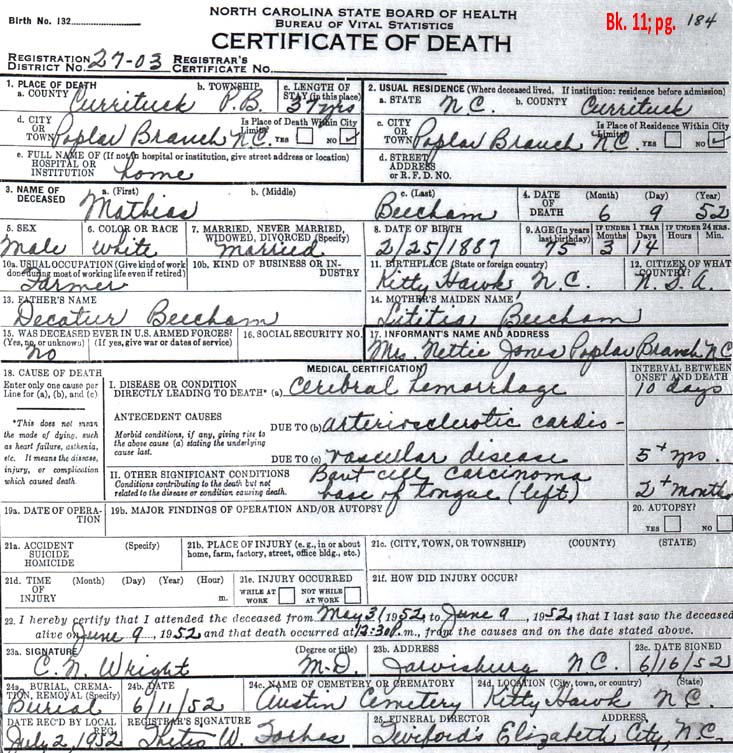 NORTH CAROLINA STATE BOARD OF HEALTH
Birth No. 132
BUREAU OF VITAL STATISTICS
Bk. 11; pg. 184
CERTIFICATE OF DEATH
REGISTRATION DISTRICT NO. 27-03 REGISTRAR'S CERTIFICATE NO.
1. PLACE OF DEATH
a. COUNTY Currituck
b. TOWNSHIP P.B.
c. LENGTH OF STAY (in this place) 57 yrs
2. USUAL RESIDENCE (Where deceased lived. If institution: residence before admission)
a. STATE N.C. b. COUNTY Currituck
d. CITY OR TOWN Poplar Branch N.C.
Is Place of Death Within City Limits? YES NO ✓
c. CITY OR TOWN Poplar Branch N.C.
Is Place of Residence Within City Limits? YES NO ✓
e. FULL NAME OF (If not in hospital or institution, give street address or location) HOSPITAL OR INSTITUTION home
d. STREET ADDRESS or R. F. D. NO.
3. NAME OF DECEASED a. (First) Mathias b. (Middle) c. (Last) Beecham
4. DATE OF DEATH (Month) 6 (Day) 9 (Year) 52
5. SEX Male
6. COLOR OR RACE white
7. MARRIED, NEVER MARRIED, WIDOWED, DIVORCED (Specify) married
8. DATE OF BIRTH 2/25/1887
9. AGE (In years last birthday) 75 IF UNDER 1 YEAR Months 3 Days 14 IF UNDER 24 HRS. Hours Min.
10a. USUAL OCCUPATION (Give kind of work done during most of working life even if retired) Farmer
10b. KIND OF BUSINESS OR INDUSTRY
11. BIRTHPLACE (State or foreign country) Kitty Hawk, N.C.
12. CITIZEN OF WHAT COUNTRY? U.S.A.
13. FATHER'S NAME Decatur Beecham
14. MOTHER'S MAIDEN NAME Lititia Beecham
15. WAS DECEASED EVER IN U.S. ARMED FORCES? (Yes, no, or unknown) (If yes, give war or dates of service) no
16. SOCIAL SECURITY NO.
17. INFORMANT'S NAME AND ADDRESS Mrs. Nettie Jones Poplar Branch NC
18. CAUSE OF DEATH
Enter only one cause per Line for (a), (b), and (c)
*This does not mean the mode of dying, such as heart failure, asthenia, etc. It means the disease, injury, or complication which caused death.
MEDICAL CERTIFICATION
INTERVAL BETWEEN ONSET AND DEATH
I. DISEASE OR CONDITION DIRECTLY LEADING TO DEATH* (a) Cerebral hemorrhage 10 days
ANTECEDENT CAUSES
Morbid conditions, if any, giving rise to the above cause (a) stating the underlying cause last.
DUE TO (b) arteriosclerotic cardio-
DUE TO (c) vascular disease 5+ yrs.
II. OTHER SIGNIFICANT CONDITIONS
Conditions contributing to the death but not related to the disease or condition causing death.
cell carcinoma
base of tongue (left) 2+ months
19a. DATE OF OPERATION
19b. MAJOR FINDINGS OF OPERATION AND/OR AUTOPSY
20. AUTOPSY? YES NO
21a. ACCIDENT SUICIDE HOMICIDE (Specify)
21b. PLACE OF INJURY (e. g., in or about home, farm, factory, street, office bldg., etc.)
21c. (CITY, TOWN, OR TOWNSHIP) (COUNTY) (STATE)
21d. TIME OF INJURY (Month) (Day) (Year) (Hour) m.
21e. INJURY OCCURRED WHILE AT WORK NOT WHILE AT WORK
21f. HOW DID INJURY OCCUR?
22. I hereby certify that I attended the deceased from May 31 1952, to June 9, 1952, that I last saw the deceased
alive on June 9, 1952 and that death occurred at 12:30 P.m., from the causes and on the date stated above.
23a. SIGNATURE C. N. Wright (Degree or title) M.D.
23b. ADDRESS Jarvisburg N.C.
23c. DATE SIGNED 6/16/52
24a. BURIAL, CREMATION, REMOVAL (Specify) Burial
24b. DATE 6/11/52
24c. NAME OF CEMETERY OR CREMATORY Austin Cemetery
24d. LOCATION (City, town, or country) (State) Kitty Hawk N.C.
DATE REC'D BY LOCAL REG. July 2, 1952
REGISTRAR'S SIGNATURE W. Forbes
25. FUNERAL DIRECTOR ADDRESS Twiford's Elizabeth City, N.C.